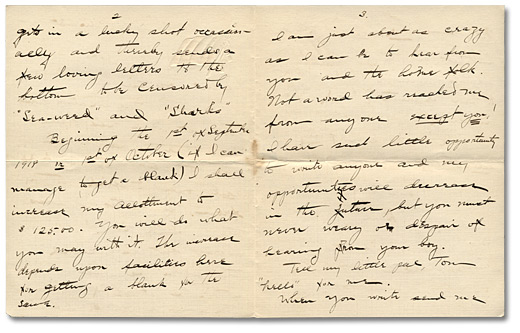 2
gets in a lucky shot occasion-
ally and thereby sends a
few loving letters to the
bottom to be censored by
"Sea-weed" and "Sharks"
Beginning the 1st of September
1918 or 1st of October (if I can
manage to get a blank) I shall
increase my allottment to
$ 120.00. You will do what
you may with it. The increase
depends upon facilities here
for getting a blank for the
same.
3.
I am just about as crazy
as I can be to hear from
you and the home folk.
Not a word has reached me
from anyone except you!
I have such little opportunity
to write anyone and my
opportunities will decrease
in the future, but you must
never weary or despair of
hearing from your boy.
Tell my little pal, Tom
for me.
When you write send me